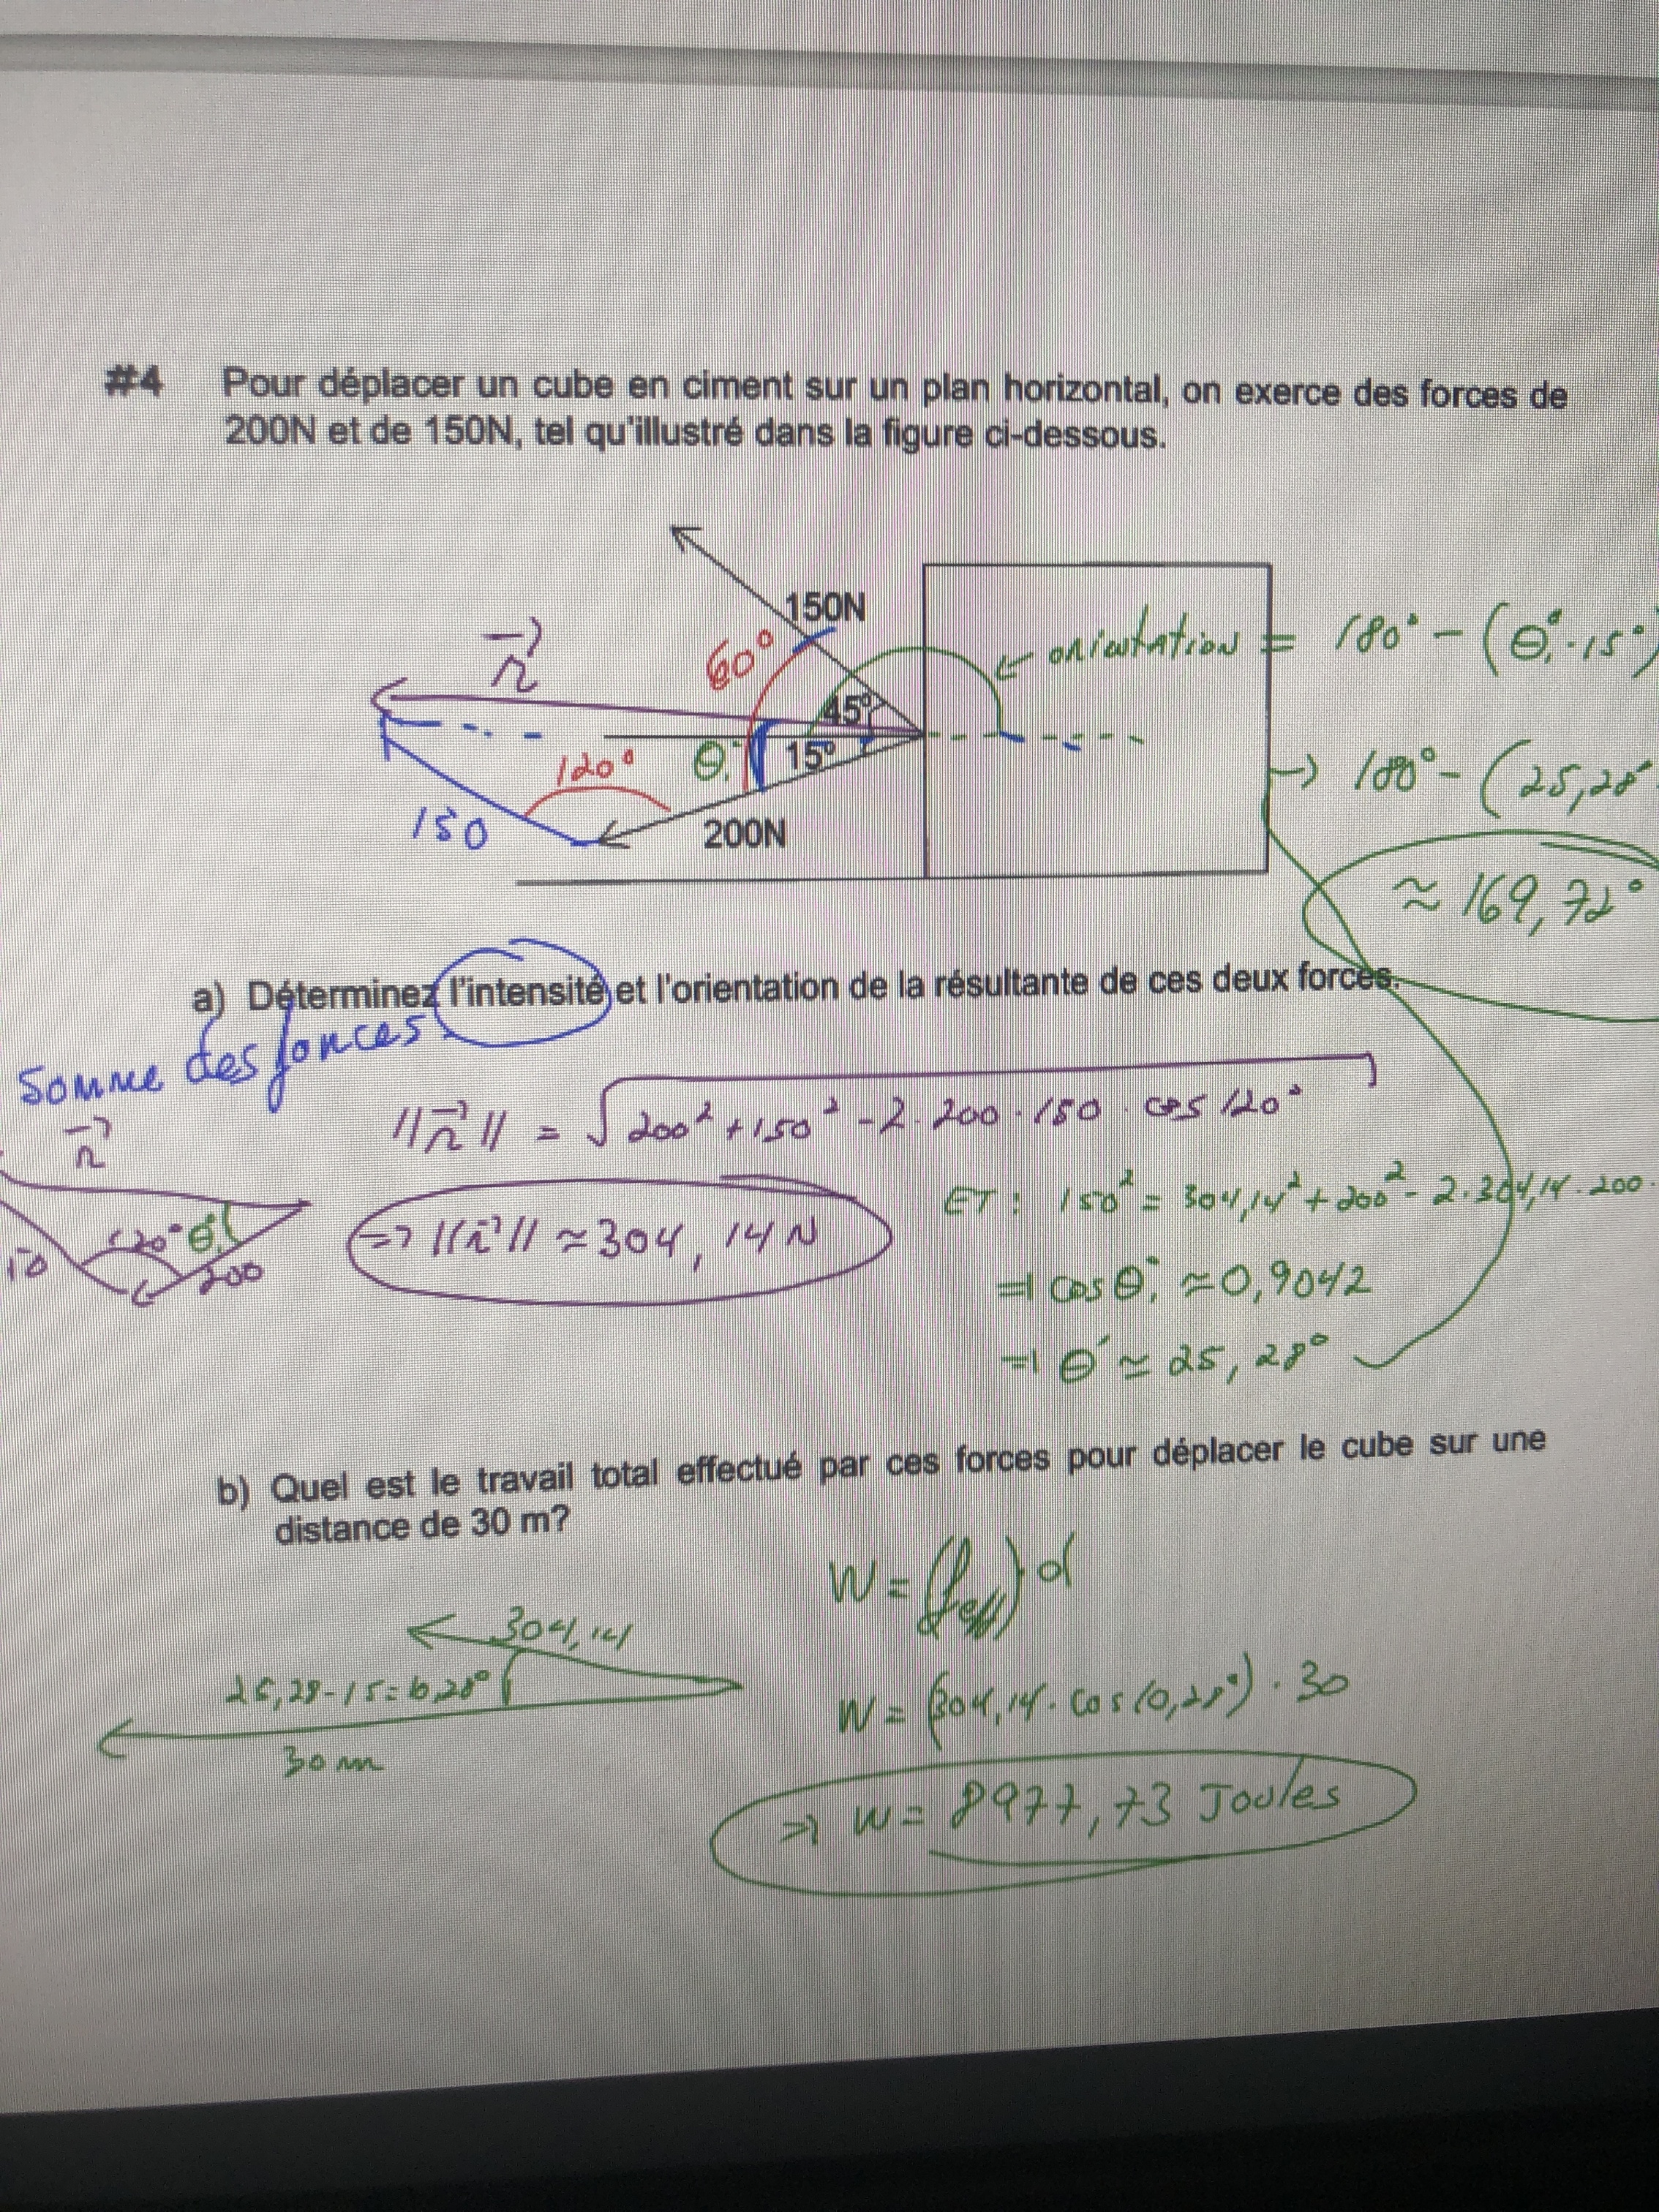 #4 Pour déplacer un cube en ciment sur un plan horizontal, on exerce des forces de
200N et de 150N, tel qu'illustré dans la figure ci-dessous.
150N
60°
r
orientation = 180° - (θ° - 15°)
45°
15°
θ
120°
→ 180° - (25,28°
150
200N
≈ 169,72°
a) Déterminez l'intensité et l'orientation de la résultante de ces deux forces.
Somme des forces
r
||r|| = √200² + 150² - 2 · 200 · 150 · cos 120°
ET : 150² = 304,14² + 200² - 2 · 304,14 · 200 ·
120° θ
200
=> ||r|| ≈ 304,14 N
=> cos θ ≈ 0,9042
=> θ ≈ 25,28°
b) Quel est le travail total effectué par ces forces pour déplacer le cube sur une
distance de 30 m?
W = (f eff) d
304,14
25,28 - 15 = 10,28°
W = (304,14 · cos 10,28°) · 30
30 m
=> W = 8977,73 Joules